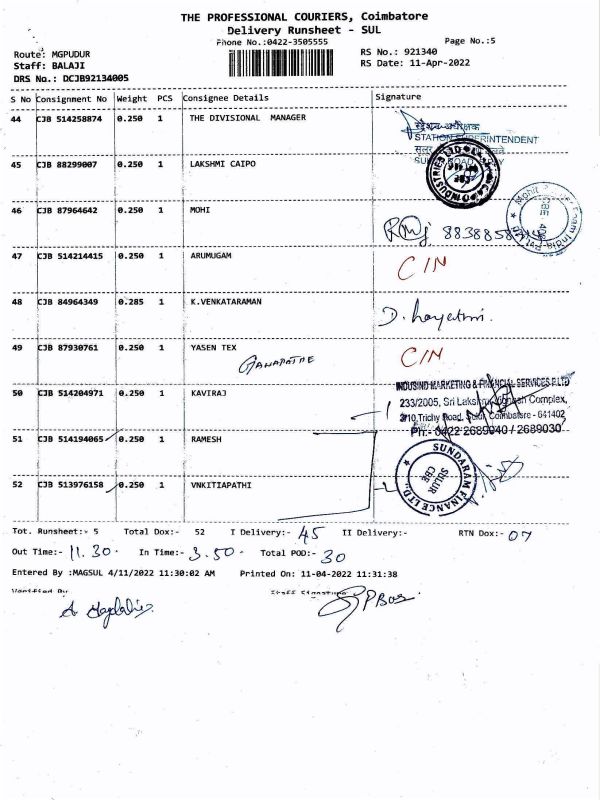 THE PROFESSIONAL COURIERS, Coimbatore
Delivery Runsheet - SUL
Phone No.:0422-3505555
Page No.:5
Route: MGPUDUR
RS No.: 921340
Staff: BALAJI
RS Date: 11-Apr-2022
DRS No.: DCJB92134005
S No Consignment No Weight PCS Consignee Details Signature
44 CJB 514258874 0.250 1 THE DIVISIONAL MANAGER
STATION SUPERINTENDENT
45 CJB 88299007 0.250 1 LAKSHMI CAIPO
46 CJB 87964642 0.250 1 MOHI
47 CJB 514214415 0.250 1 ARUMUGAM C/N
48 CJB 84964349 0.285 1 K.VENKATARAMAN
49 CJB 87930761 0.250 1 YASEN TEX C/N
50 CJB 514204971 0.250 1 KAVIRAJ
INDUSIND MARKETING & FINANCIAL SERVICES P.LTD
233/2005, Sri Lakshmi Complex,
Trichy Road, Sulur, Coimbatore - 641402
PH:- 0422 2689040 / 2689030
51 CJB 514194065 0.250 1 RAMESH
52 CJB 513976158 0.250 1 VNKITIAPATHI
SUNDARAM FINANCE LTD
SULUR
CBE
Tot. Runsheet:- 5 Total Dox:- 52 I Delivery:- 45 II Delivery:- RTN Dox:- 07
Out Time:- 11.30. In Time:- 3.50. Total POD:- 30
Entered By :MAGSUL 4/11/2022 11:30:02 AM Printed On: 11-04-2022 11:31:38
Verified By
Staff Signature